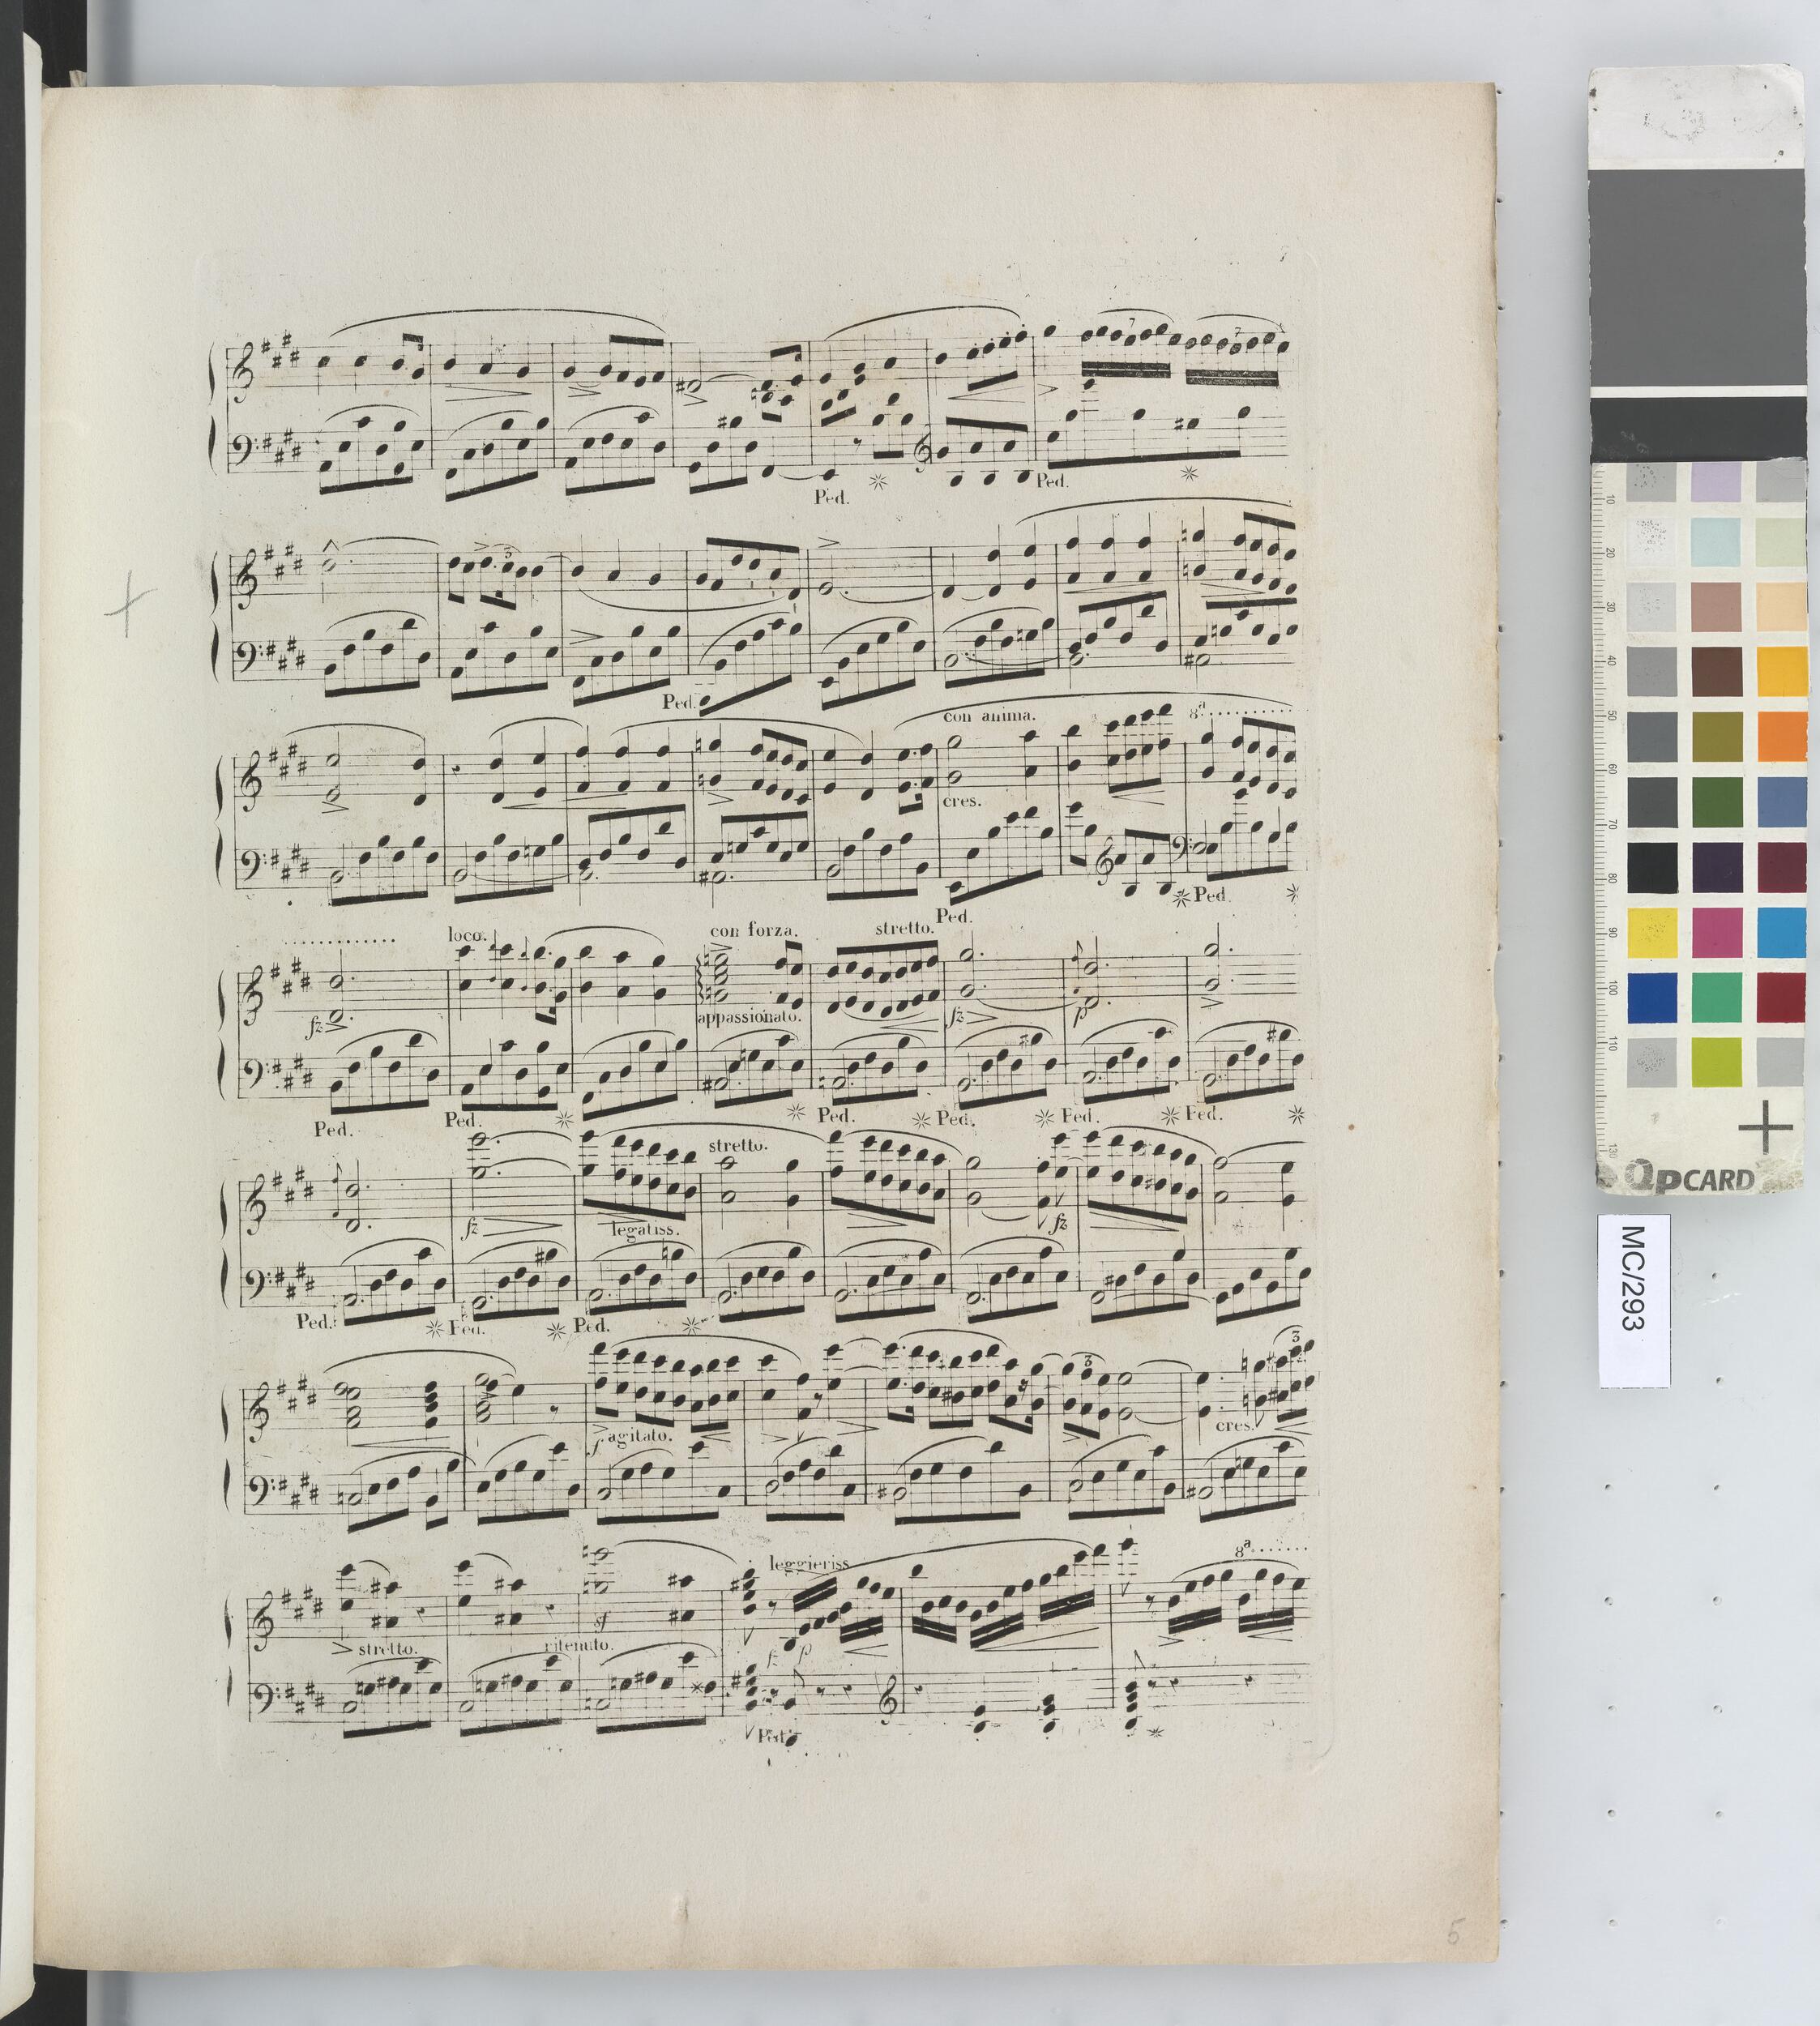 7 7
Ped. ✳ Ped. ✳
3
Ped.
con anima. 8ª
cres.
✳ Ped. ✳
Ped.
loco. con forza. stretto.
fz appassionato. fz p
Ped. Ped. ✳ ✳ Ped. ✳ Ped. ✳ Ped. ✳ Ped. ✳
stretto.
fz legatiss. fz
Ped. ✳ Ped. ✳ Ped. ✳
3 3
f agitato. cres.
leggieriss. 8ª
stretto. ritenuto. sf
fz p
Ped. ✳
5
10
20
30
40
50
60
70
80
90
100
110
130
QPCARD
MC/293